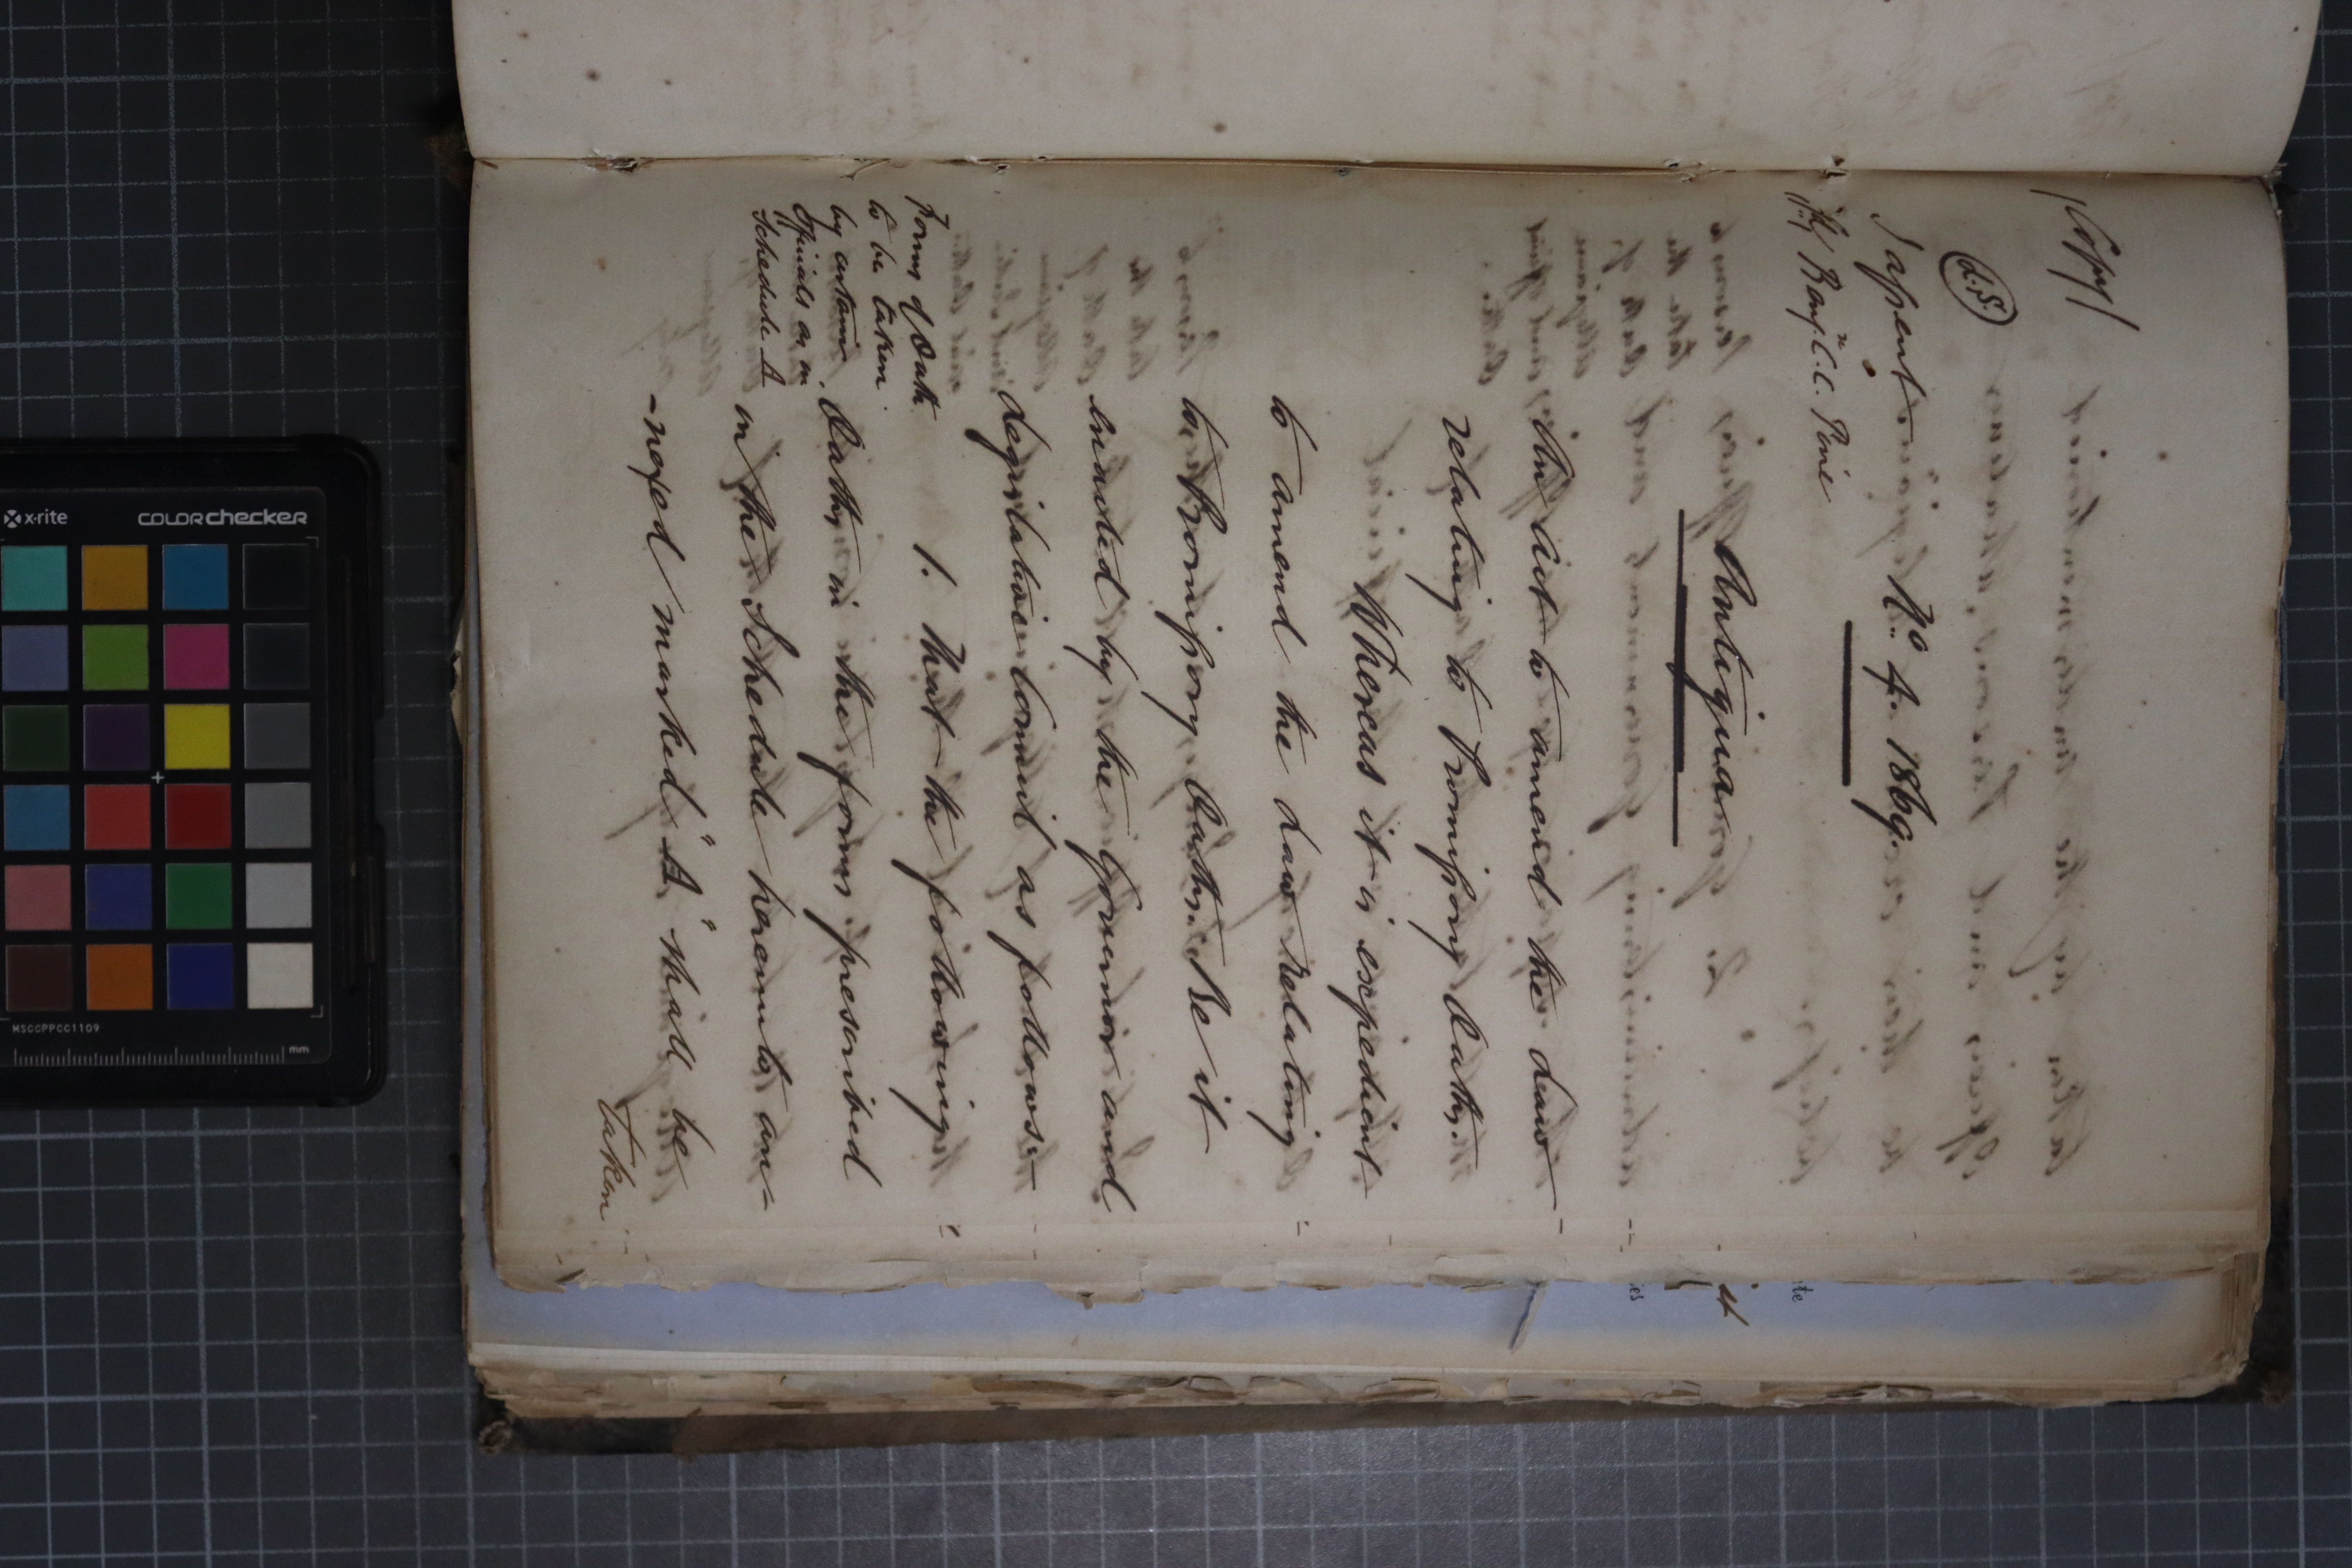 /Copy/
(L.S.)
I assent
Nº. 4. 1869.
/Sd/ Benjn. C.C. Pine
Antigua
An Act to amend the Law
relating to Promissory Oaths.
Whereas it is expedient
to amend the Law relating
to Promissory Oaths: Be it
enacted by the Governor and
Legislative Council as follows:-
Form of Oath
to be taken
by certain
Officials as in
Schedule A
1. That the following
Oaths in the forms prescribed
in the Schedule hereunto an-
-nexed marked "A" shall be
taken
x-rite
COLORchecker
MSCCPPCC1109
mm
it
te
es